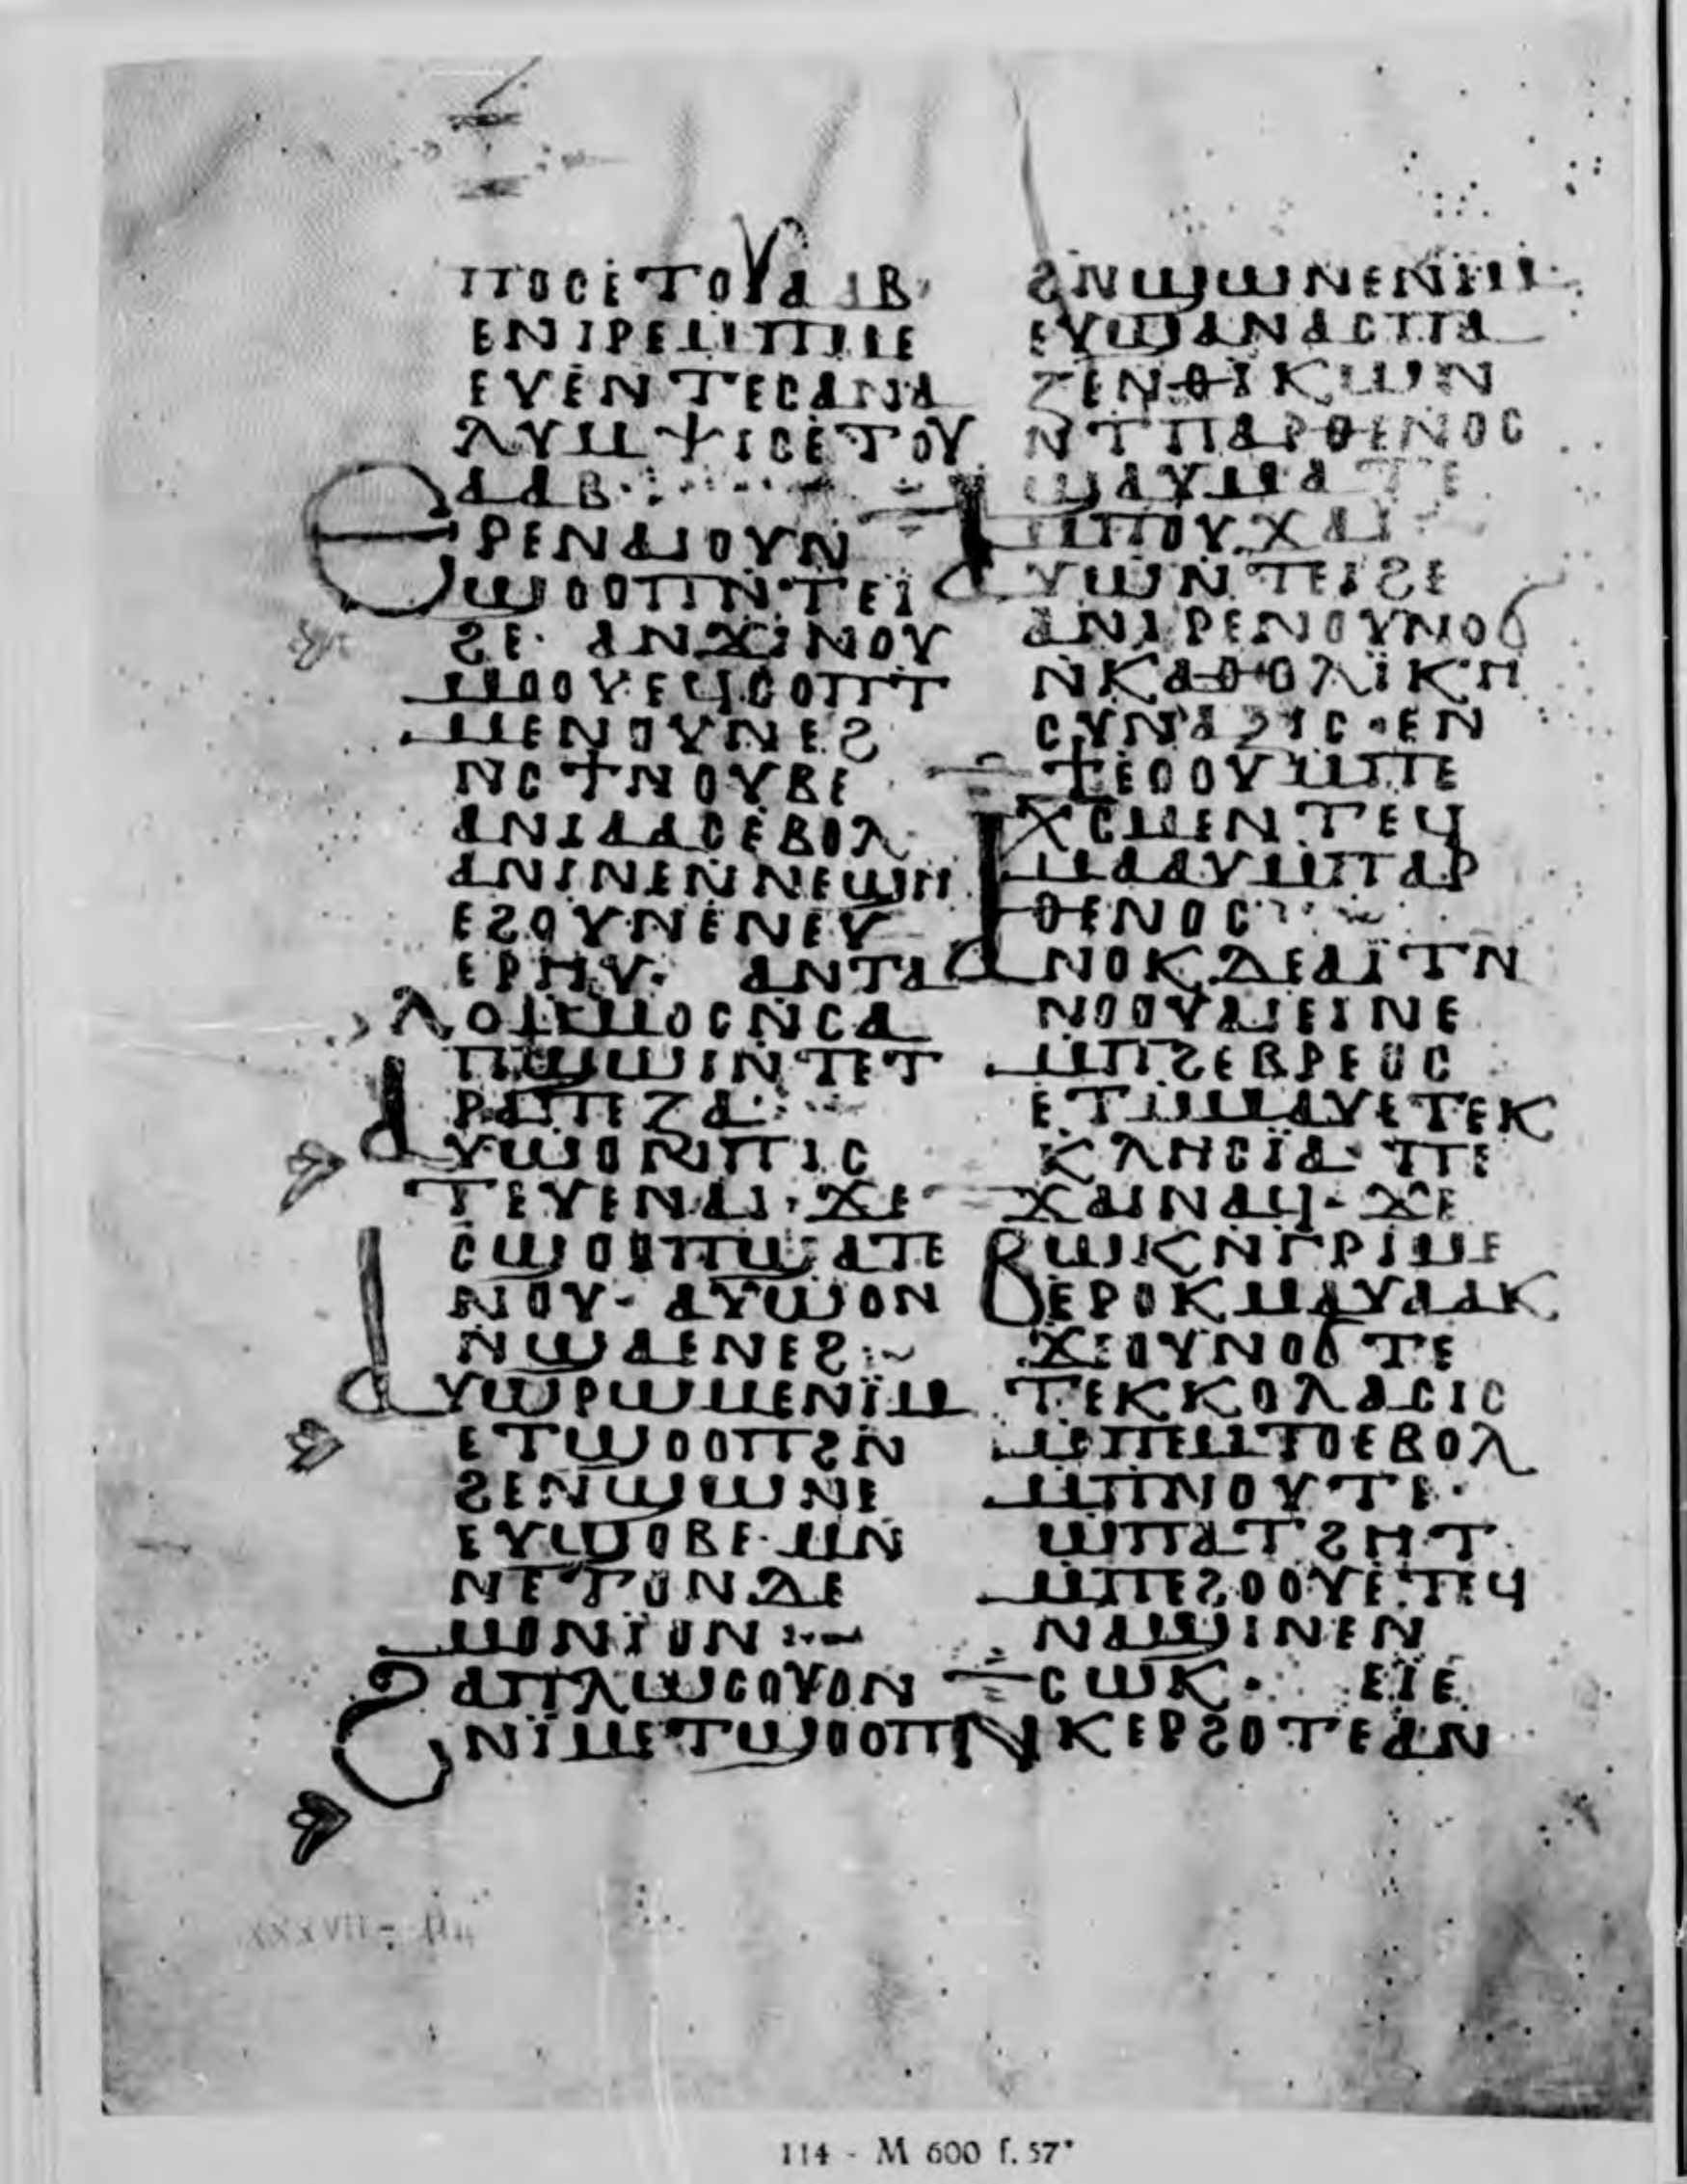 ⲡⲟⲥⲉⲧⲟⲩⲁⲁⲃ·
ⲉⲛⲓⲣⲉⲙⲡⲙⲉ
ⲉⲩⲉⲛⲧⲉⲥⲁⲛⲁ
ⲗⲩⲙⲯⲓⲥⲉⲧⲟⲩ
ⲁⲁⲃ·:
ⲉⲣⲉⲛⲁⲓⲟⲩⲛ
ϣⲟⲟⲡⲛⲧⲉⲓ
ϩⲉ· ⲁⲛϫⲓⲛⲟⲩ
ⲙⲟⲟⲩⲉϥⲥⲟⲧⲡ
ⲙⲉⲛⲟⲩⲛⲉϩ
ⲛⲥϯⲛⲟⲩⲃⲉ
ⲁⲛⲓⲁⲁⲥⲉⲃⲟⲗ·
ⲁⲛⲓⲛⲉⲛⲛⲉϣⲏ
ⲉϩⲟⲩⲛⲉⲛⲉⲩ
ⲉⲣⲏⲩ· ⲁⲛⲧⲁ
ⲗⲟⲓⲙⲙⲟⲥⲛⲥⲁ
ⲡϣⲱⲓⲛⲧⲉⲧ
ⲣⲁⲡⲉⲍⲁ:
ⲁⲩⲱⲟⲛⲙⲡⲓⲥ
ⲧⲉⲩⲉⲛⲁⲓ· ϫⲉ
ⲥϣⲟⲟⲡϣⲁⲧⲉ
ⲛⲟⲩ· ⲁⲩⲱⲟⲛ
ⲛϣⲁⲉⲛⲉϩ:~
ⲁⲩⲱⲣⲱⲙⲉⲛⲓⲙ
ⲉⲧϣⲟⲟⲡϩⲛ
ϩⲉⲛϣⲱⲛⲉ
ⲉⲩϣⲟⲃⲉ· ⲙⲛ
ⲛⲉⲧⲟⲛⲇⲉ
ⲙⲟⲛⲓⲟⲛ:~
ϩⲁⲡⲗⲱⲥⲟⲩⲟⲛ
ⲛⲓⲙⲉⲧϣⲟⲟⲡ
ϩⲛϣⲱⲛⲉⲛⲓⲙ·
ⲉⲩϣⲁⲛⲁⲥⲡⲁ
ⲍⲉⲛⲑⲓⲕⲱⲛ
ⲛⲧⲡⲁⲣⲑⲉⲛⲟⲥ
ϣⲁⲩⲙⲁⲧⲉ
ⲙⲡⲟⲩϫⲁⲓ·
ⲁⲩⲱⲛⲧⲉⲓϩⲉ
ⲁⲛⲓⲣⲉⲛⲟⲩⲛⲟϭ
ⲛⲕⲁⲑⲟⲗⲓⲕⲏ
ⲥⲩⲛⲁⲝⲓⲥ· ⲉⲛ
ϯⲉⲟⲟⲩⲙⲡⲉ
ⲭⲥⲙⲉⲛⲧⲉϥ
ⲙⲁⲁⲩⲙⲡⲁⲣ
ⲑⲉⲛⲟⲥ:~
ⲁⲛⲟⲕⲇⲉⲁⲓⲧⲛ
ⲛⲟⲟⲩⲁⲓⲉⲓⲛⲉ
ⲙⲡϩⲉⲃⲣⲉⲟⲥ
ⲉⲧⲙⲙⲁⲩⲉⲧⲉⲕ
ⲕⲗⲏⲥⲓⲁ· ⲡⲉ
ϫⲁⲓⲛⲁϥ· ϫⲉ
ⲃⲱⲕⲛⲅⲣⲓⲙⲉ
ⲉⲣⲟⲕⲙⲁⲩⲁⲁⲕ
ϫⲉⲟⲩⲛⲟϭⲧⲉ
ⲧⲉⲕⲕⲟⲗⲁⲥⲓⲥ
ⲙⲡⲉⲙⲧⲟⲉⲃⲟⲗ
ⲙⲡⲛⲟⲩⲧⲉ·
ⲱⲡⲁⲧϩⲏⲧ·
ⲙⲡⲉϩⲟⲟⲩⲉⲧϥ
ⲛⲁϣⲓⲛⲉⲛ
ⲥⲱⲕ·: ⲉⲓⲉ
ⲛⲕⲉⲣϩⲟⲧⲉⲁⲛ
XXXVII - 114
114 - M 600 f. 57ᵛ